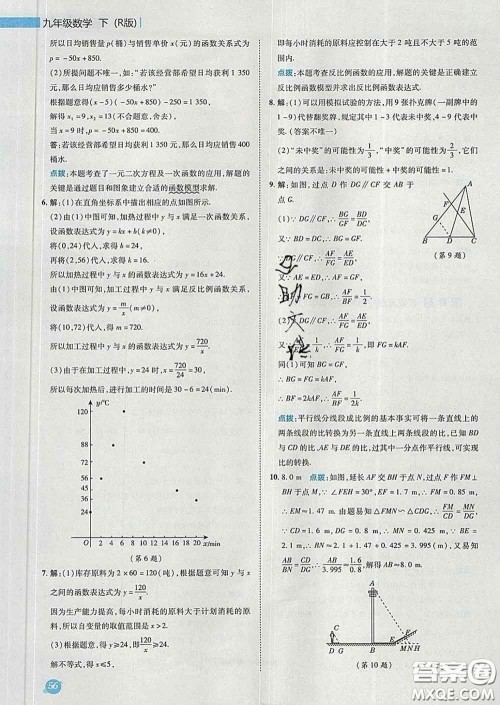 九年级数学 下 (R版)
所以日均销售量 p(桶)与销售单价 x(元)的函数关系式为
p=-50x+850.
(2)所提问题不唯一,如:“若该经营部希望日均获利 1 350
元,那么日均应销售多少桶水?”
根据题意得(x-5)(-50x+850)-250=1 350.
解得 x₁=9,x₂=13(不合题意,舍去).
当 x=9 时,p=-50x+850=400.
答:若该经营部希望日均获利 1 350 元,那么日均应销售 400
桶水.
点拨:本题考查了一元二次方程及一次函数的应用,解题的
关键是通过题目和图象建立合适的函数模型求解.
6. 解:(1)在直角坐标系中描出相应的点如图所示.
(2)由(1)中图可知,加热过程中 y 与 x 满足一次函数关系.
设函数表达式为 y=kx+b(k≠0).
将(0,24)代入,得 b=24.
再将(2,56)代入,得 k=16.
所以加热过程中 y 与 x 的函数表达式为 y=16x+24.
由(1)中图可知,加工过程中 y 与 x 满足反比例函数关系.
设函数表达式为 y=m/x (m≠0).
将(6,120)代入,得 m=720.
所以加工过程中 y 与 x 的函数表达式为 y=720/x.
(3)由(2)知,在加工过程中,当 y=24 时,x=720/24=30.
所以每次加热后,进行加工的时间是 30-6=24(min).
y/℃
120
108
96
84
72
60
48
36
24
O 2 4 6 8 10 12 14 16 18 20 x/min
(第 6 题)
7. 解:(1)库存原料为 2×60=120(吨),根据题意可知 y 与 x
之间的函数表达式为 y=120/x.
因为生产能力提高,每小时消耗的原料大于计划消耗的原料
量,所以自变量的取值范围是 x>2.
(3)根据题意,得 y≥24,即 120/x≥24.
解不等式,得 x≤5,
56
即每小时消耗的原料应控制在大于 2 吨且不大于 5 吨的范
围内.
点拨:本题考查反比例函数的应用,解题的关键是正确建立
反比例函数模型并求出反比例函数表达式.
8. 解:(1)可以用模拟试验的方法,用 9 张扑克牌(一副牌中的
1~9)代替翻奖牌,规定其中 1~3 代表未中奖,4~9 代表中
奖.(答案不唯一)
(2)“未中奖”的可能性=1/3,“中奖”的可能性=2/3,它们之
间的关系:未中奖的可能性+中奖的可能性=1.
9. 解:如图,过点 D 作 DG∥CF 交 AB 于
点 G.
(1)∵DG∥CF,∴BG/GF=BD/CD.
又∵BD=CD,∴BG=FG.
又∵DG∥CF,∴AF/FG=AE/ED.
又∵AE=ED,∴AF=FG.
∴AF=FG=GB,∴AF/FB=1/2.
(2)∵DG∥CF,∴AF/FG=AE/ED.
又∵AE/ED=1/k,∴AF/FG=1/k,即 FG=kAF.
同(1)可知 FG=BG,∴AF/BF=AF/2FG.
∴BF=2kAF,∴AF/BF=1/2k.
A
F
G
E
B D C
(第 9 题)
点拨:平行线分线段成比例的基本事实可将一条直线上的
两条线段的比转变为另一条直线上两条线段的比,实现了
比的转移,由此,过其中一分点作平行线,可实现比
的转换.
10. 8.0 m 点拨:如图,延长 AC 交 BH 于点 N,过点 F 作 FM⊥
BH,垂足为 M,∵∠FEH=30°,EF=1.7 m,∴FM=0.85 m,
EM≈1.47 m. 由题易知△CDG∽△FMN,∴CD/FM=DG/MN,即
1.6/0.85=0.8/MN,∴MN=0.425 m. ∵BN=MN+ME+BE,BE=
2.1 m,∴BN≈3.995 m. 易知△ABN∽△CDG,∴AB/BN=
CD/DG,∴AB/3.995≈1.6/0.8,解得 AB≈8.0 m.
A
C
F
D G B E M N H
(第 10 题)
互助文住
答案圈
MXQE.COM